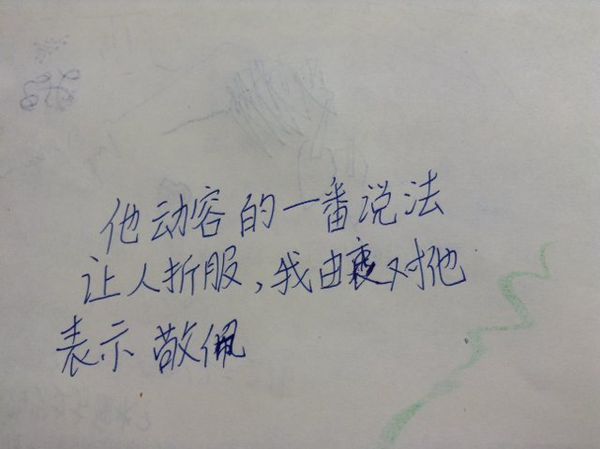 他动容的一番说法
让人折服,我由衷对他
表示敬佩